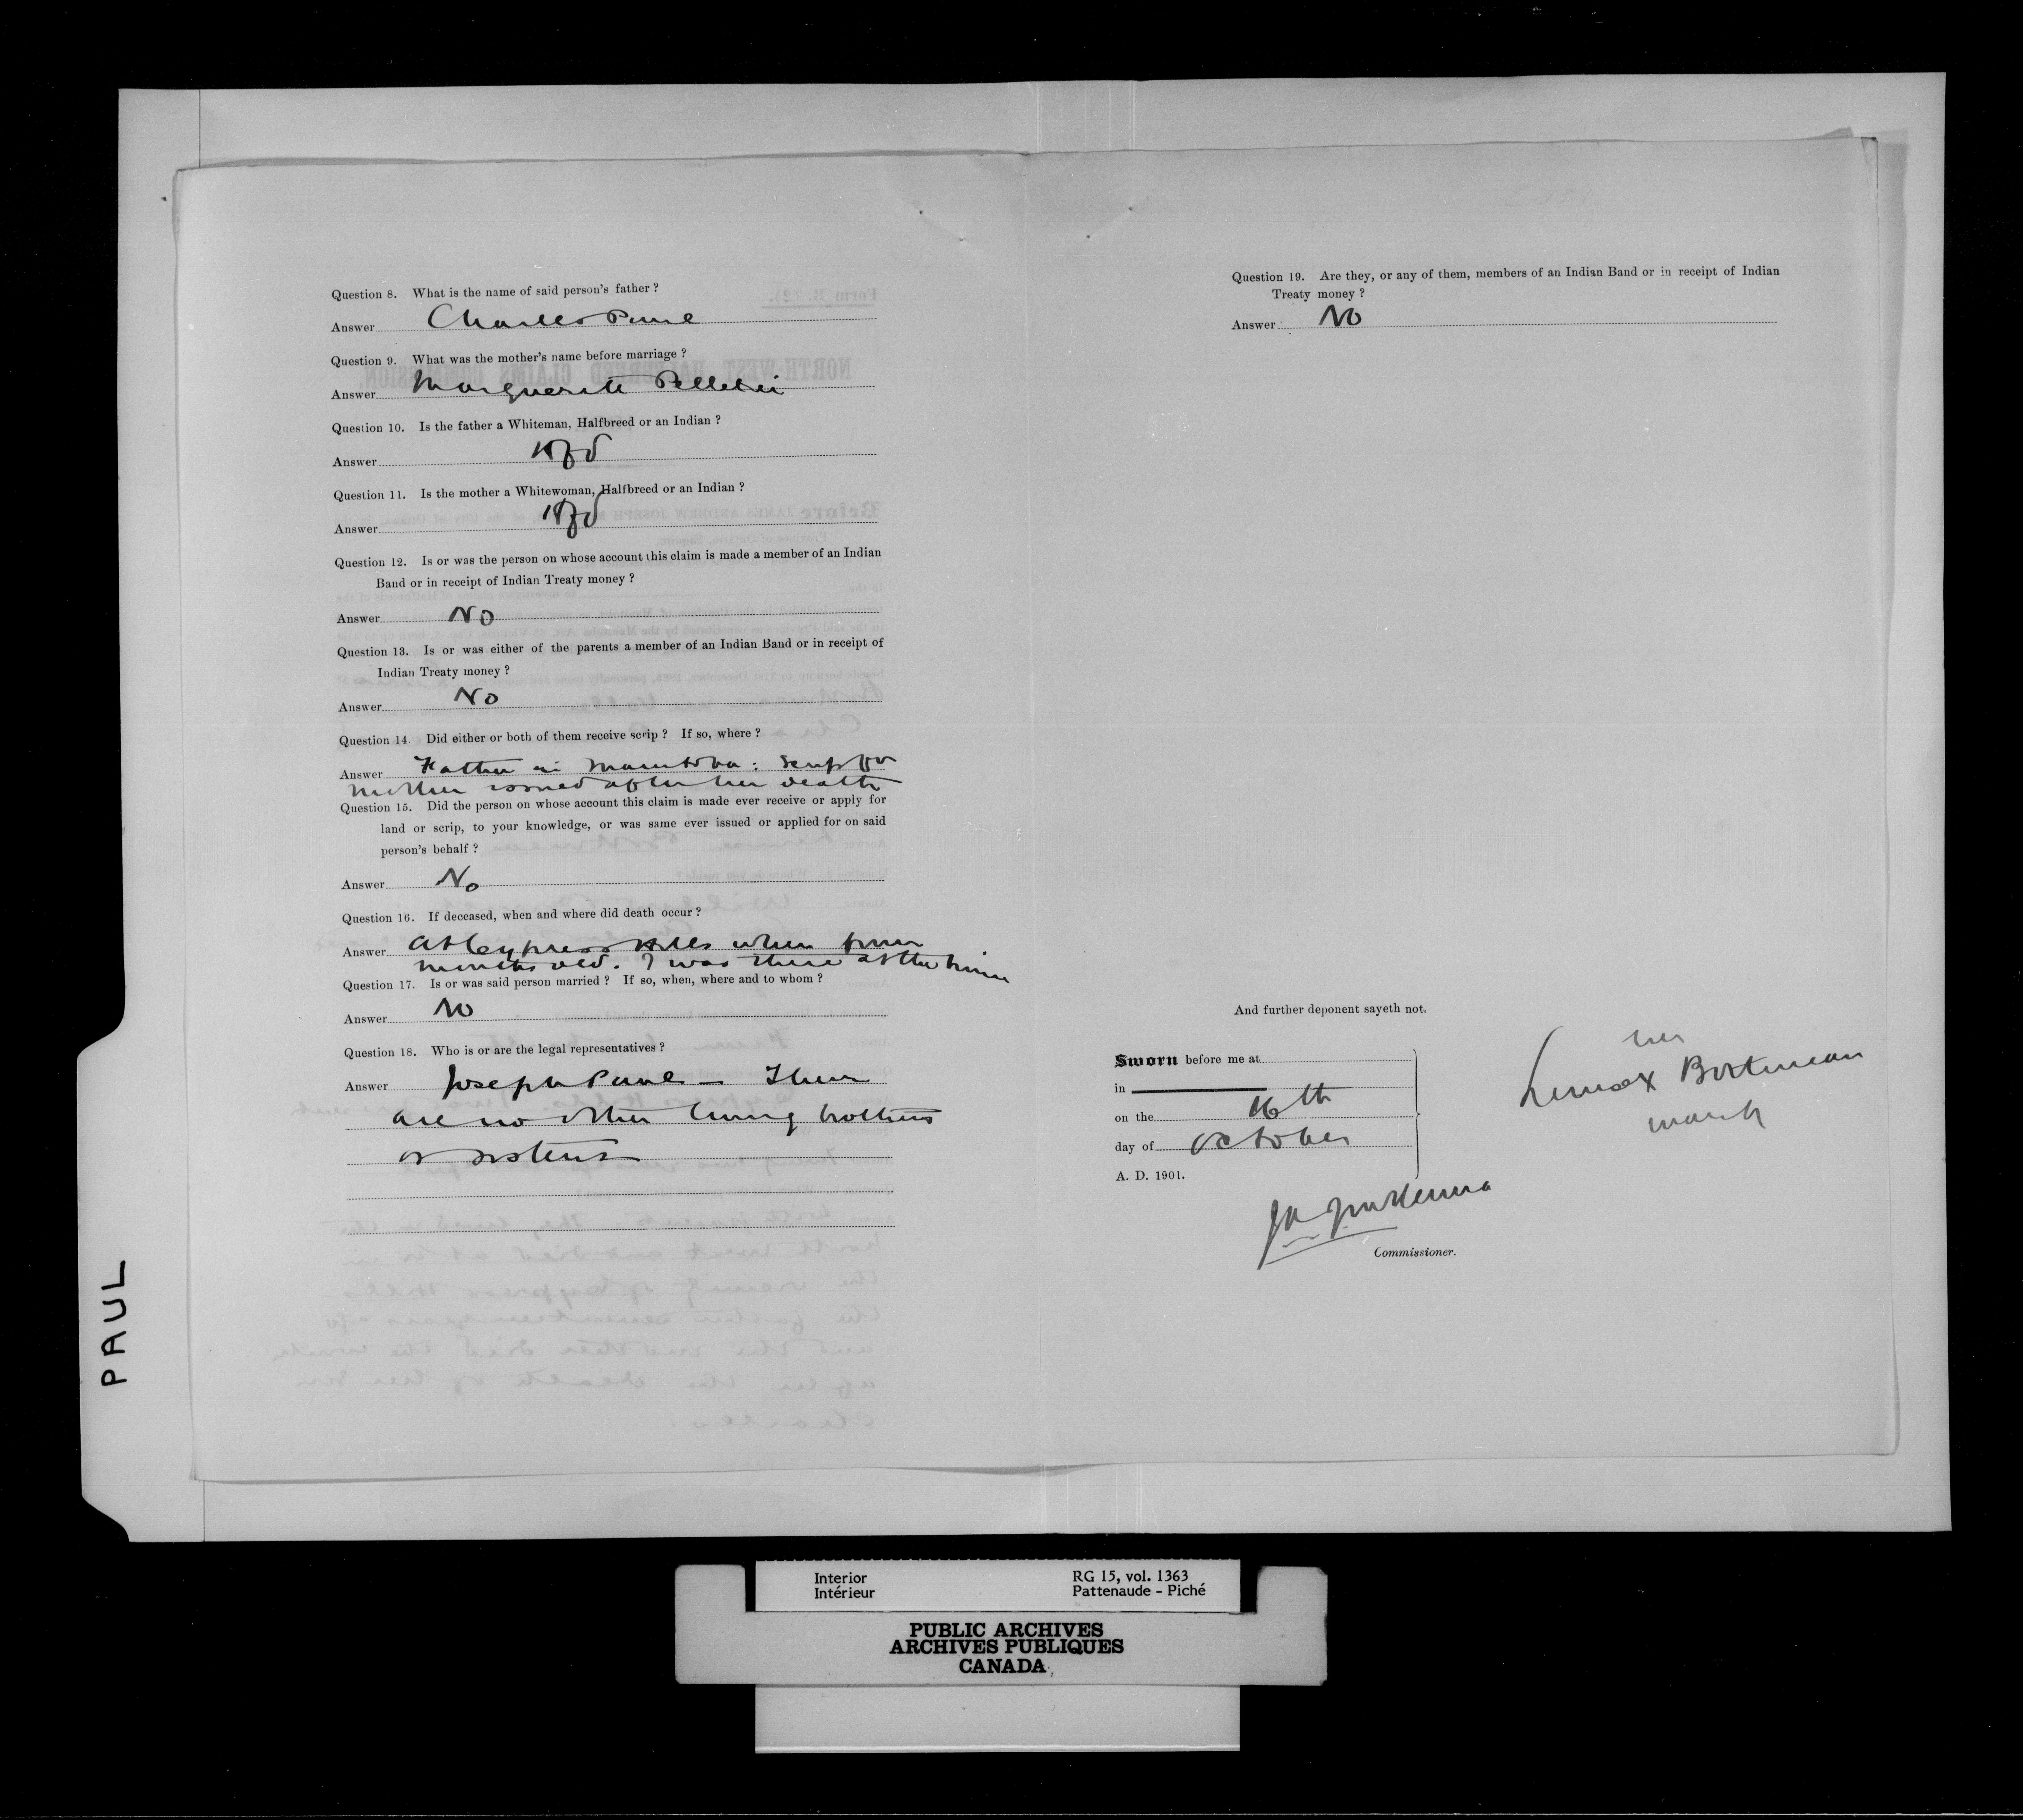 Question 8. What is the name of said person's father ?
Answer Charles Paul
Question 9. What was the mother's name before marriage ?
Answer Marguerite Pelletier
Question 10. Is the father a Whiteman, Halfbreed or an Indian ?
Answer Hfbd
Question 11. Is the mother a Whitewoman, Halfbreed or an Indian ?
Answer Hfbd
Question 12. Is or was the person on whose account this claim is made a member of an Indian
Band or in receipt of Indian Treaty money ?
Answer No
Question 13. Is or was either of the parents a member of an Indian Band or in receipt of
Indian Treaty money ?
Answer No
Question 14. Did either or both of them receive scrip ? If so, where ?
Answer Father in Manitoba : scrip for
mother issued after her death
Question 15. Did the person on whose account this claim is made ever receive or apply for
land or scrip, to your knowledge, or was same ever issued or applied for on said
person's behalf ?
Answer No
Question 16. If deceased, when and where did death occur ?
Answer At Cypress Hills when four
months old. I was there at the time
Question 17. Is or was said person married ? If so, when, where and to whom ?
Answer No
Question 18. Who is or are the legal representatives ?
Answer Joseph Paul – There
are no other living brothers
or sisters
Question 19. Are they, or any of them, members of an Indian Band or in receipt of Indian
Treaty money ?
Answer No
And further deponent sayeth not.
Sworn before me at
in
on the 16th
day of October
A. D. 1901.
her
x
mark
Commissioner.
PAUL
Interior
Intérieur
RG 15, vol. 1363
Pattenaude - Piché
PUBLIC ARCHIVES
ARCHIVES PUBLIQUES
CANADA